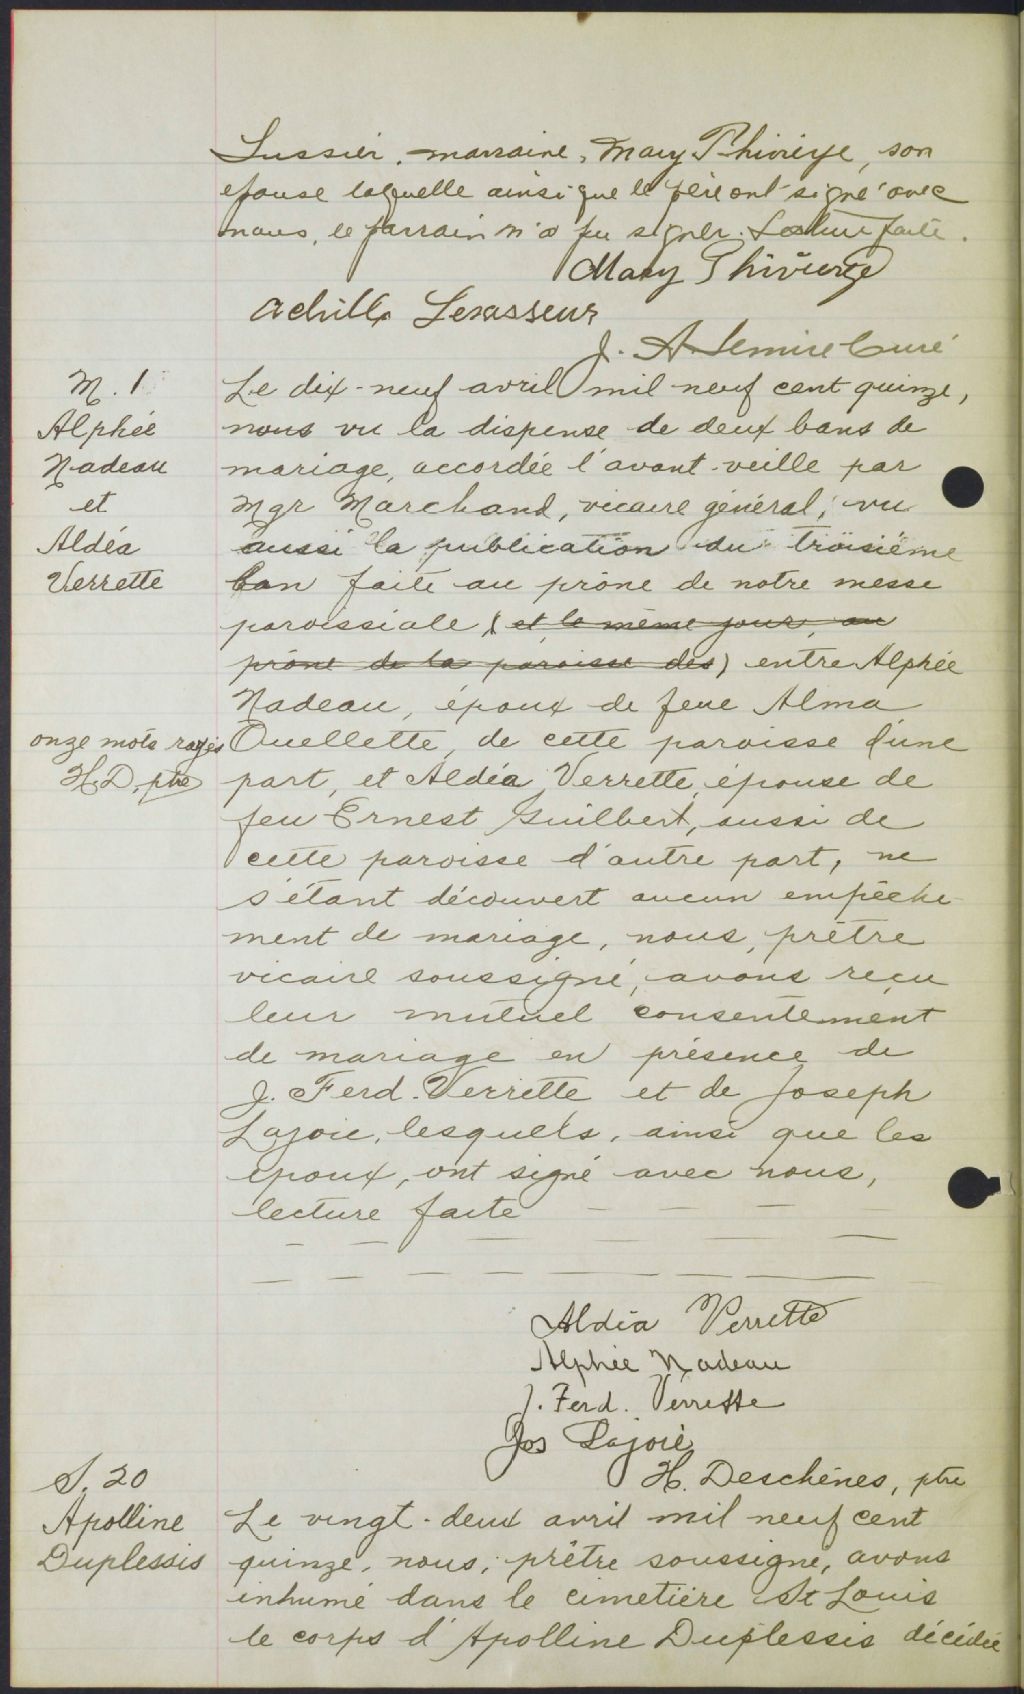 Lussier, marraine, Mary Thivierge, son
epouse laquelle ainsi que le père ont signé avec
nous, le parrain n'a pu signer. Lecture faite.
Mary Thivierge
Achille Levasseur
J. A. Lemire Curé
M. 1
Alphée
Nadeau
et
Aldéa
Verrette
Le dix-neuf avril mil neuf cent quinze,
nous vu la dispense de deux bans de
mariage, accordée l'avant-veille par
Mgr Marchand, vicaire général, vu
aussi la publication du troisième
ban faite au prône de notre messe
paroissiale, (et le même jour, au
prône de la paroisse des) entre Alphée
Nadeau, époux de feue Alma
onze mots rayés
H.D. ptre
Ouellette, de cette paroisse d'une
part, et Aldéa Verrette, épouse de
feu Ernest Guilbert, aussi de
cette paroisse d'autre part, ne
s'étant découvert aucun empêche-
ment de mariage, nous, prêtre
vicaire soussigné, avons reçu
leur mutuel consentement
de mariage en présence de
J. Ferd. Verrette et de Joseph
Lajoie, lesquels, ainsi que les
époux, ont signé avec nous,
lecture faite
Aldéa Verrette
Alphée Nadeau
J. Ferd. Verrette
Jos Lajoie
H. Deschênes, ptre
S. 20
Apolline
Duplessis
Le vingt-deux avril mil neuf cent
quinze, nous, prêtre soussigné, avons
inhumé dans le cimetière St Louis
le corps d'Apolline Duplessis décédée